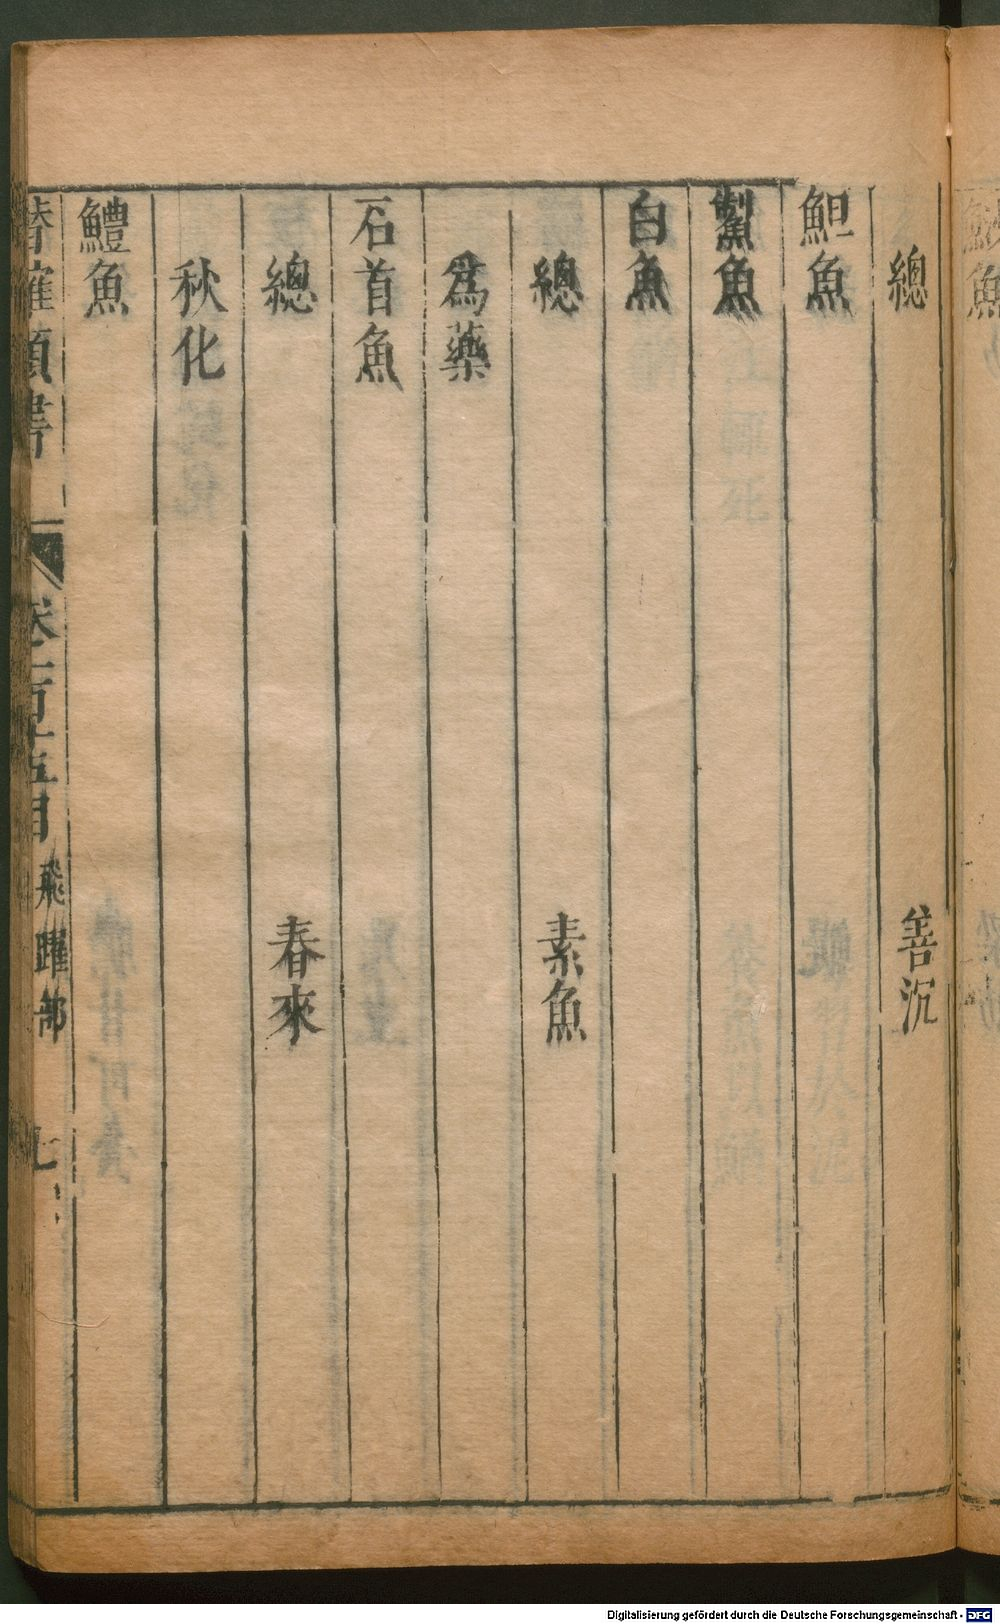 總 善沉
䱇魚
鮆魚
白魚
總 素魚
為藥
石首魚
總 春來
秋化
鱧魚
類書 卷一百十五目 飛躍部 七
Digitalisierung gefördert durch die Deutsche Forschungsgemeinschaft - DFG